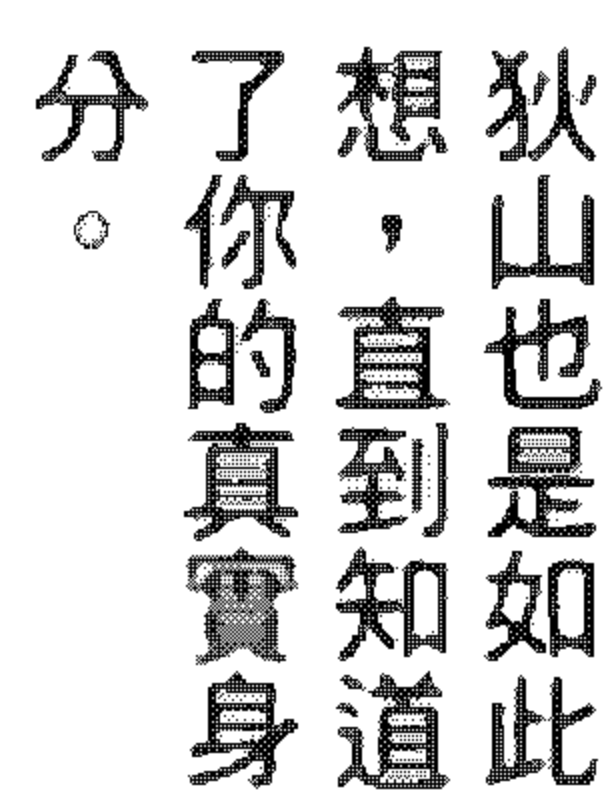 狄山也是如此
想，直到知道
了你的真實身
分。